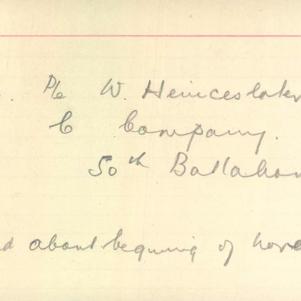 . Pte W. Heinceslaten
C Company.
50th Battalion
d about beginning of Nov